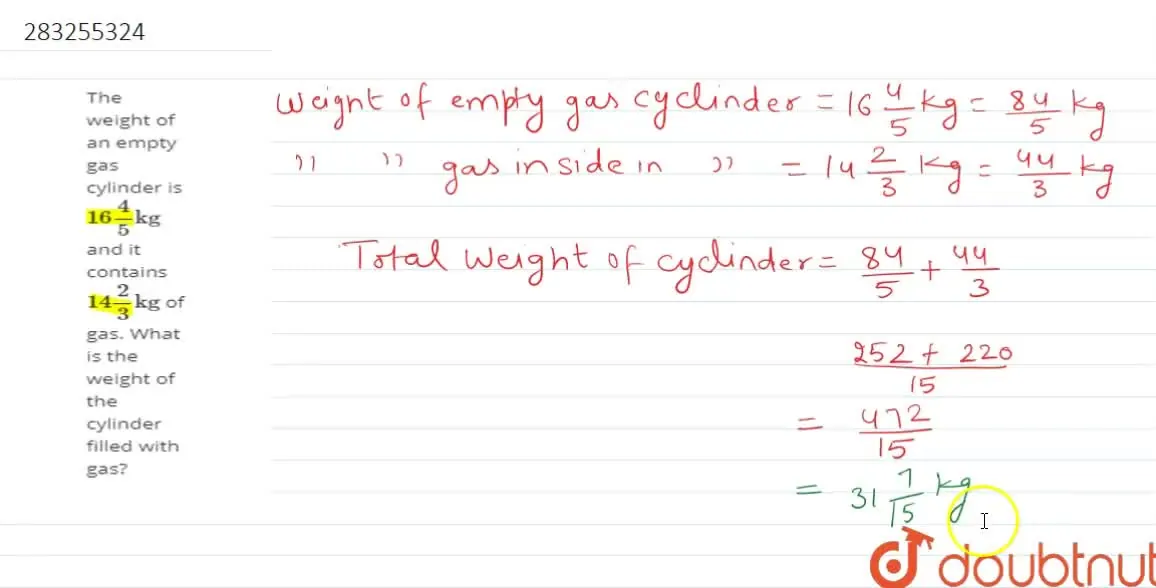 283255324
The
weight of
an empty
gas
cylinder is
16 4/5 kg
and it
contains
14 2/3 kg of
gas. What
is the
weight of
the
cylinder
filled with
gas?
Weight of empty gas cyclinder = 16 4/5 kg = 84/5 kg
" " gas inside in " = 14 2/3 kg = 44/3 kg
Total Weight of cyclinder = 84/5 + 44/3
252 + 220/15
= 472/15
= 31 7/15 kg
doubtnut